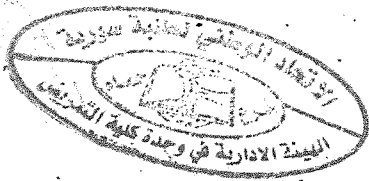 الاتحاد الوطني لطلبة سورية
فرع
الهيئة الادارية في وحدة كلية التمريض